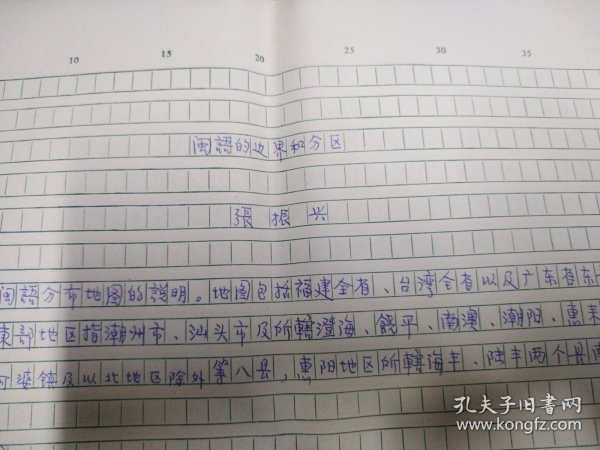 10 15 20 25 30 35
闽語的边界和分区
張振兴
闽語分布地图的說明。地图包括福建全省、台湾全省以及广东省东
東部地区指潮州市、汕头市及所轄澄海、饒平、南澳、潮阳、惠来
婆鎮及以北地区除外等八县，惠阳地区所轄海丰、陆丰两个县
孔夫子旧書网
www.kongfz.com